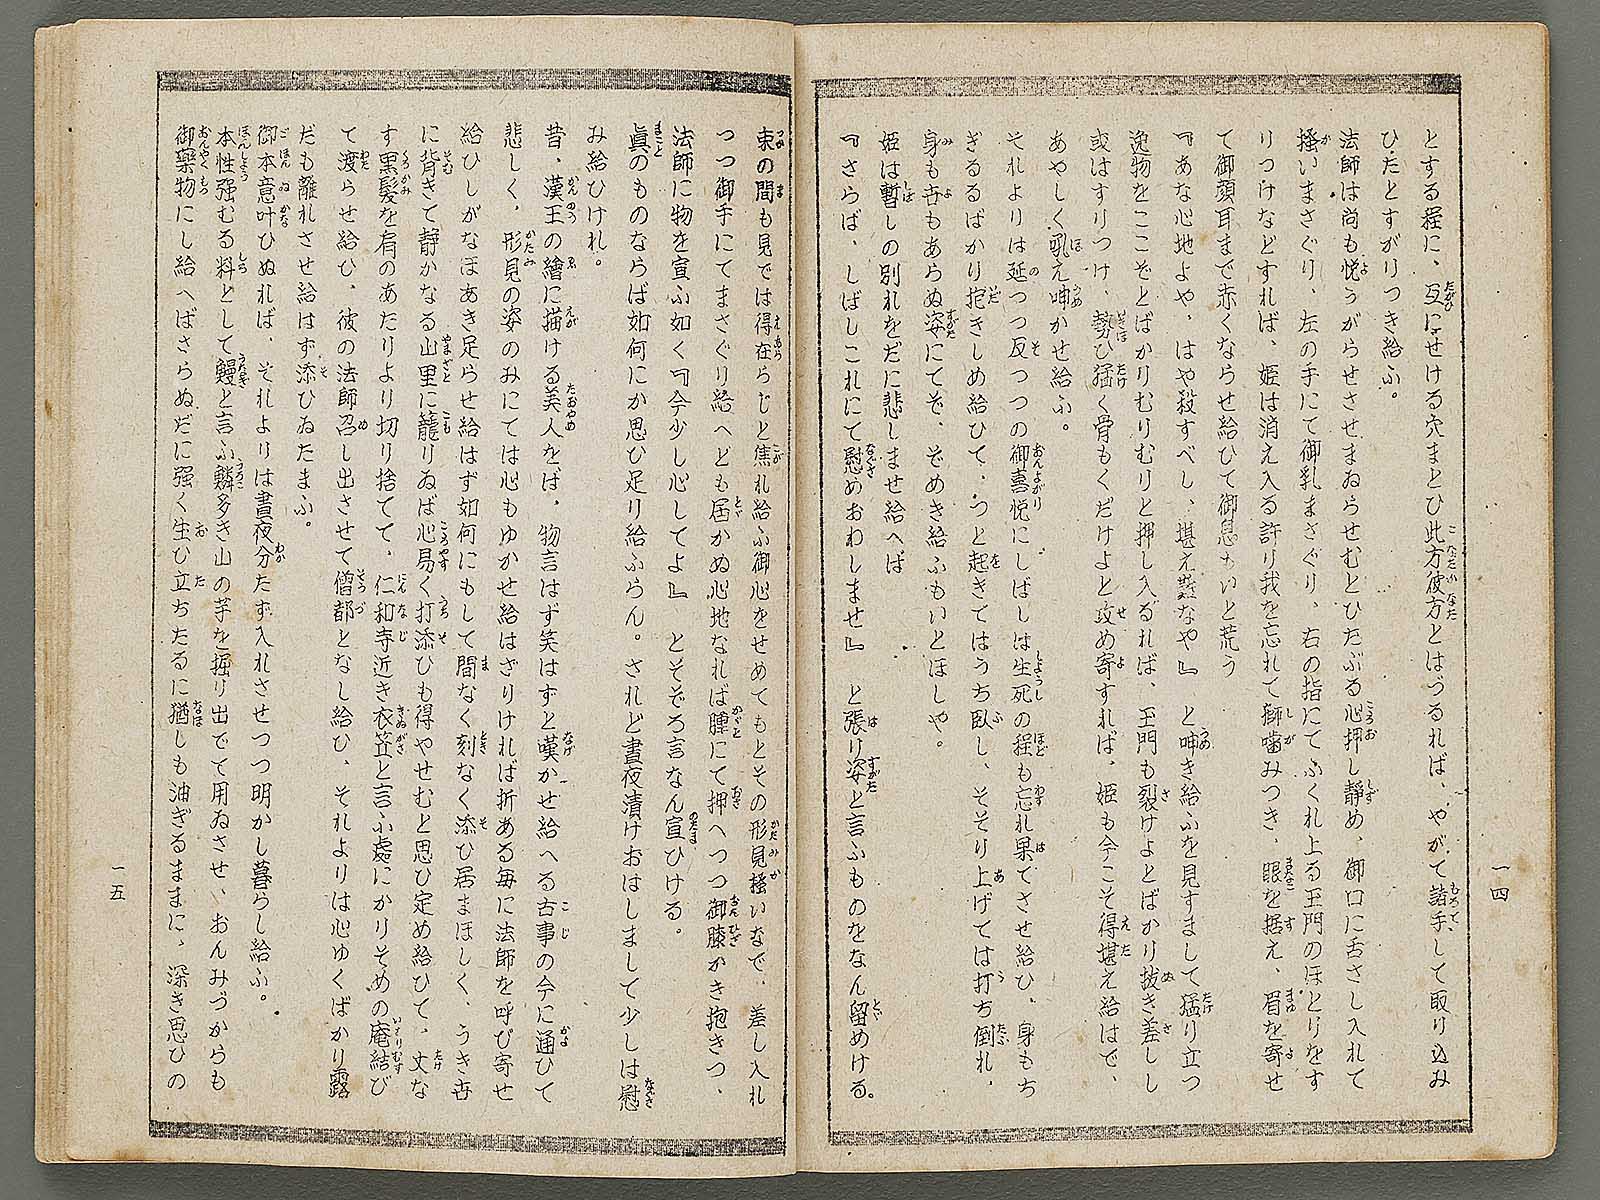 一四
とする程に、互にせける穴まとひ此方彼方とはづるれば、やがて諸手して取り込み
ひたとすがりつき給ふ。
法師は尚も悦うがらせさせまゐらせむとひたぶる心押し静め、御口に舌さし入れて
掻いまさぐり、左の手にて御乳まさぐり、右の指にてふくれ上る玉門のほとりをす
りつけなどすれば、姫は消え入る許り我を忘れて獅噛みつき、眼を据え、眉を寄せ
て御顔耳まで赤くならせ給ひて御息もいと荒う
『あな心地よや、はや殺すべし、堪え難なや』と呻き給ふを見すまして猛り立つ
逸物をここぞとばかりむりむりと押し入るれば、玉門も裂けよとばかり抜き差しし
或はすりつけ、勢ひ猛く骨もくだけよと攻め寄すれば、姫も今こそ得堪え給はで、
あやしく吼え呻かせ給ふ。
それよりは延つつ反つつの御喜悦にしばしは生死の程も忘れ果てさせ給ひ、身もち
ぎるるばかり抱きしめ給ひて、つと起きてはうち臥し、そそり上げては打ち倒れ、
身も世もあらぬ姿にてぞ、ぞめき給ふもいとほしや。
姫は暫しの別れをだに悲しませ給へば
『さらば、しばしこれにて慰めおわしませ』と張り姿と言ふものをなん留めける。
束の間も見では得在らじと焦れ給ふ御心をせめてもとその形見掻いなで、差し入れ
つつ御手にてまさぐり給へども届かぬ心地なれば踵にて押へつつ御膝かき抱きつ、
法師に物を宣ふ如く『今少し心してよ』とそぞろ言なん宣ひける。
眞のものならば如何にか思ひ足り給ふらん。されど晝夜漬けおはしまして少しは慰
み給ひけれ。
昔、漢王の繪に描ける美人をば、物言はず笑はずと嘆かせ給へる古事の今に通ひて
悲しく、形見の姿のみにては心もゆかせ給はざりければ折ある毎に法師を呼び寄せ
給ひしがなほあき足らせ給はず如何にもして間なく刻なく添ひ居まほしく、うき世
に背きて静かなる山里に籠りゐば心易く打添ひも得やせむと思ひ定め給ひて、丈な
す黒髪を肩のあたりより切り捨てて、仁和寺近き衣笠と言ふ處にかりそめの庵結び
て渡らせ給ひ、彼の法師召し出させて僧都となし給ひ、それよりは心ゆくばかり露
だも離れさせ給はず添ひゐたまふ。
御本意叶ひぬれば、それよりは晝夜分たず入れさせつつ明かし暮らし給ふ。
本性强むる料として鰻と言ふ鱗多き山の芋を掘り出でて用ゐさせ、おんみづからも
御藥物にし給へばさらぬだに强く生ひ立ちたるに猶しも油ぎるままに、深き思ひの
一五